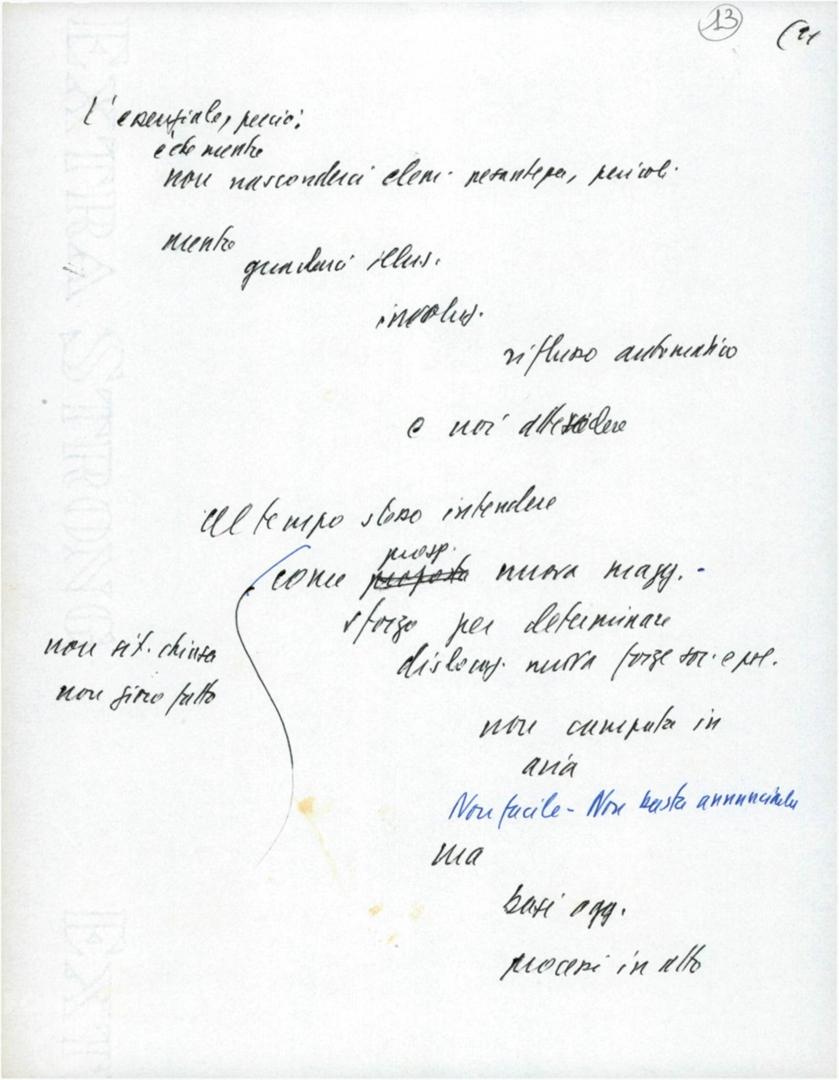 13
l'essenziale, perciò:
è che mentre
non nasconderci elem. pesantezza, pericoli.
mentre
guardarci illus.
involuz.
riflusso automatico
e noi attendere
Al tempo stesso intendere
prosp.
come proposta nuova magg. -
sforzo per determinare
non sit. chiusa
dislocaz. nuova forze soc. e pol.
non gioco fatto
non campata in
aria
Non facile - Non basta annunciarla
ma
basi ogg.
processi in atto
EXTRA STRONG
EXT